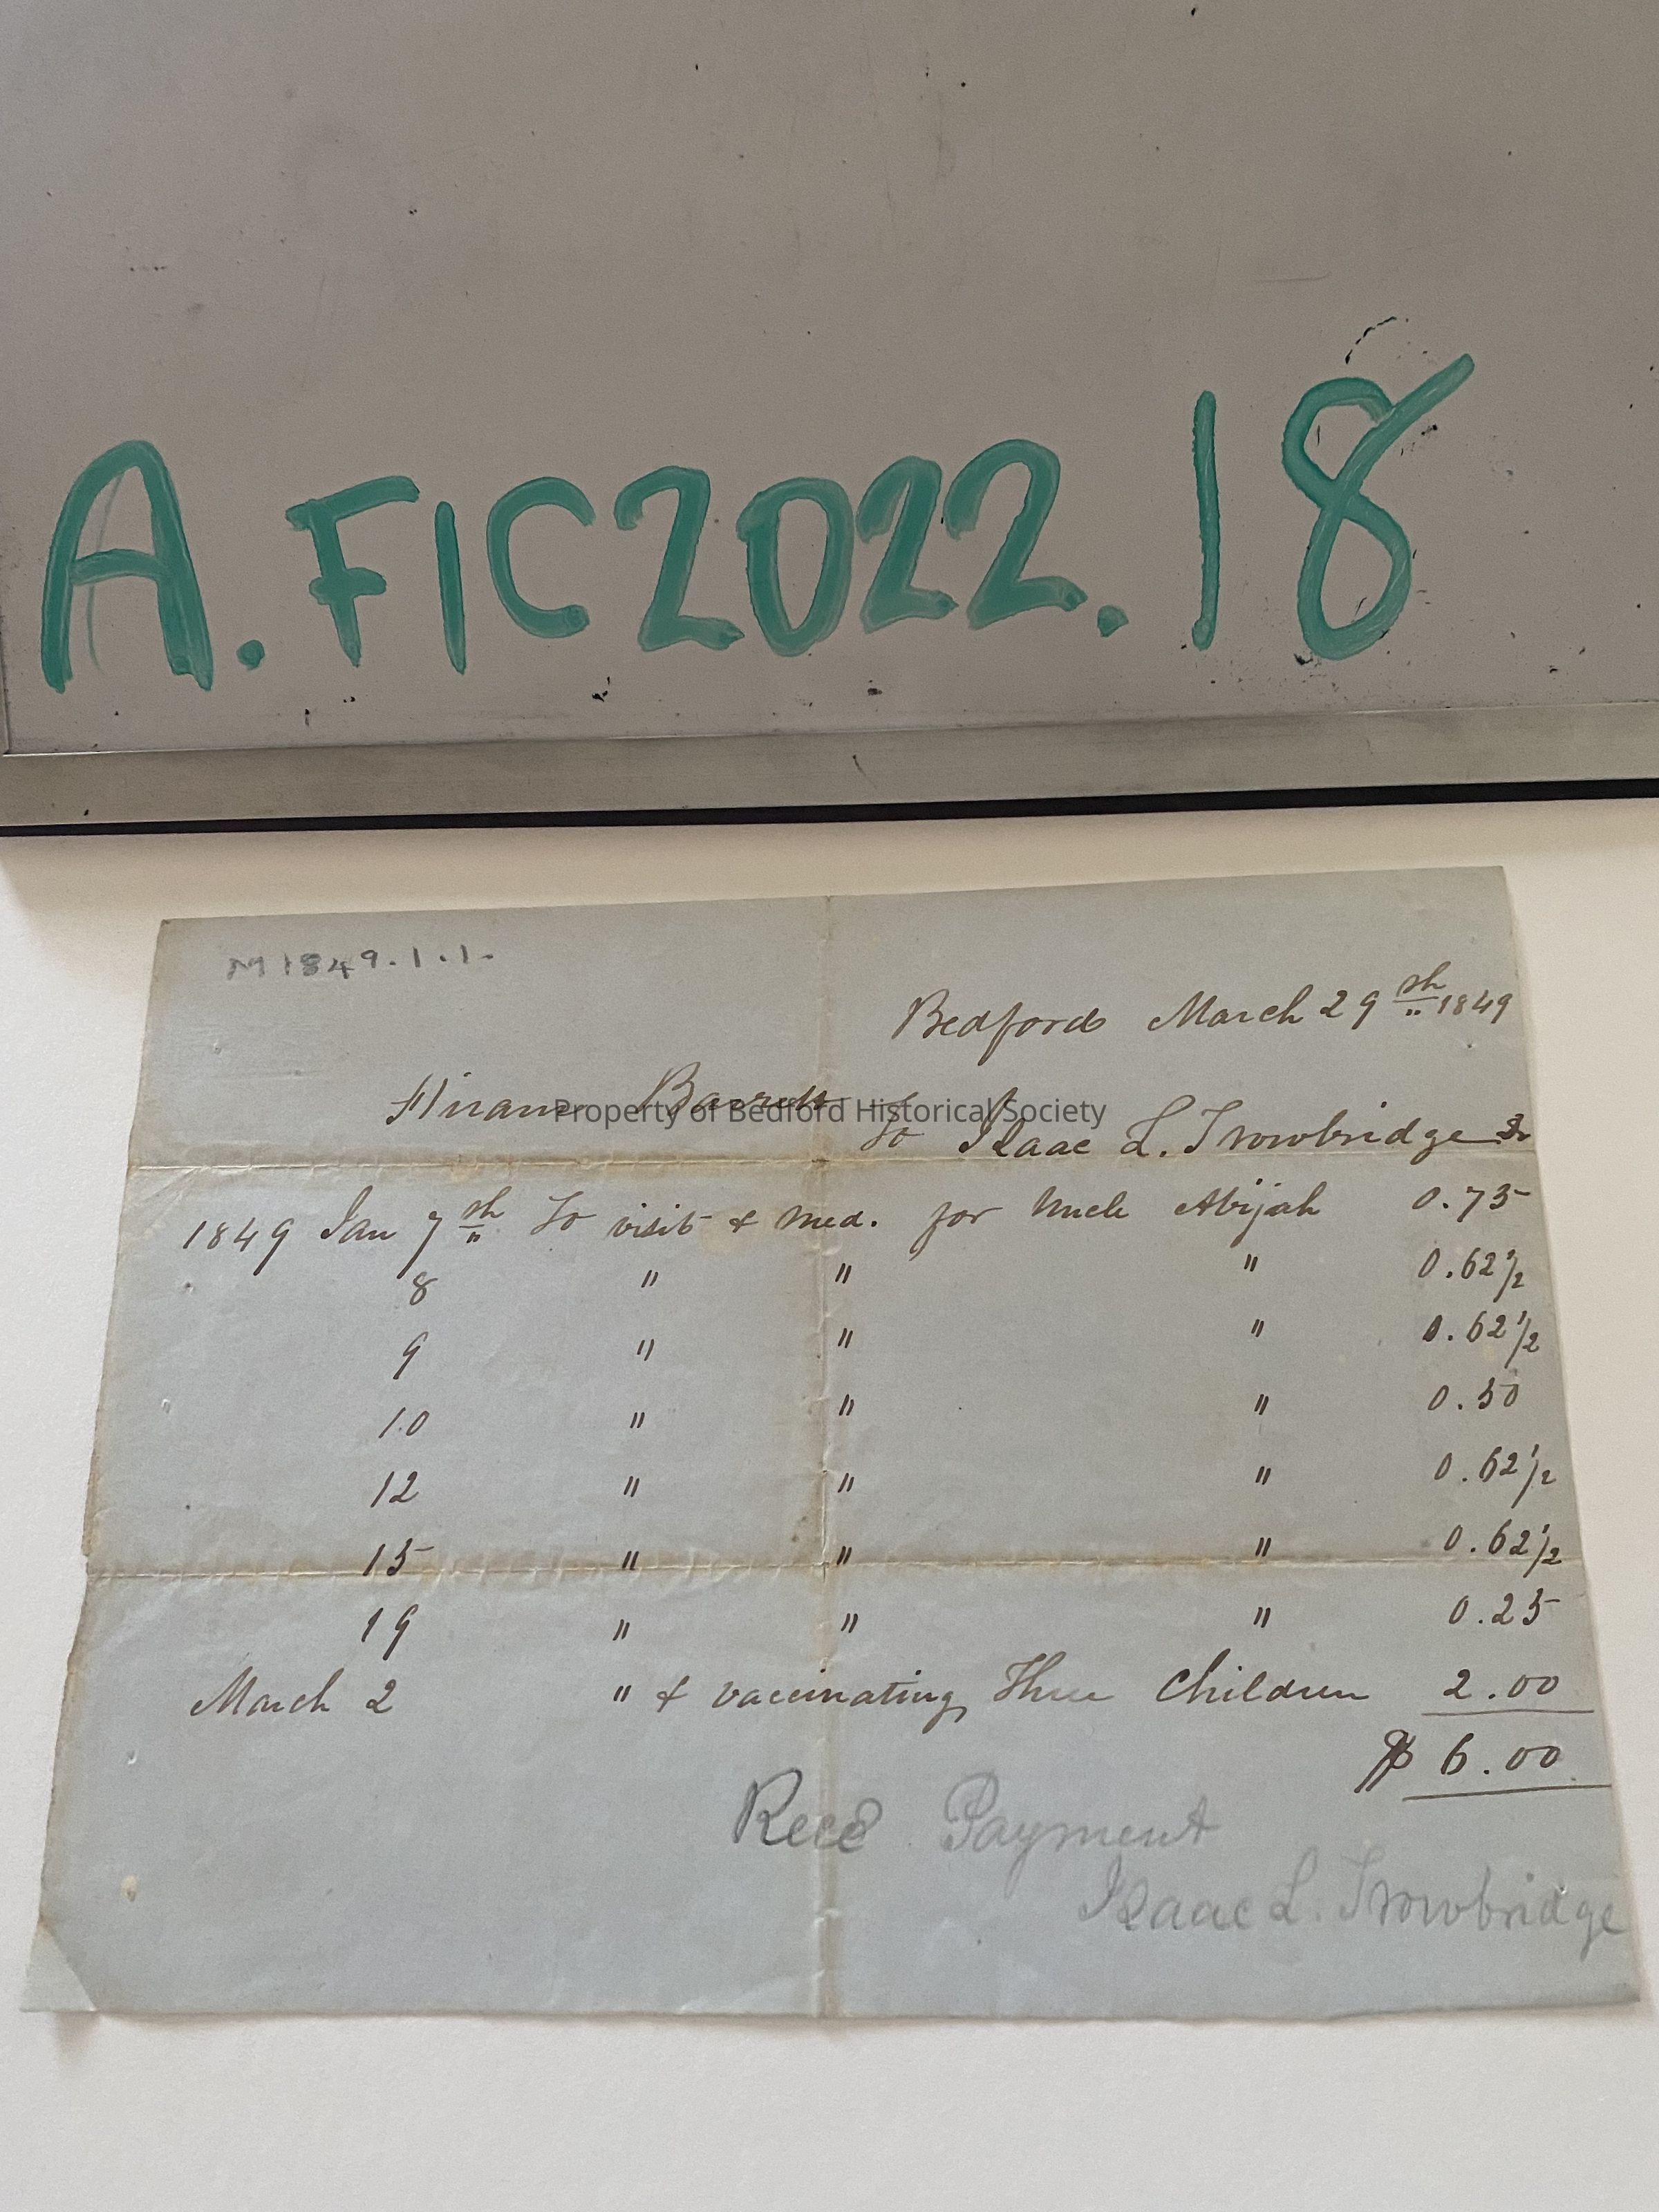 A.FIC2022.18
M1849.1.1.
Bedford March 29th 1849
Hiram Barrett
Property of Bedford Historical Society
To Isaac L. Trowbridge Dr
1849 Jan 7th To visit & Med. for Uncle Abijah 0.75
8 " " " 0.62 1/2
9 " " " 0.62 1/2
10 " " " 0.50
12 " " " 0.62 1/2
15 " " " 0.62 1/2
19 " " " 0.25
March 2 " & vaccinating Three Children 2.00
$ 6.00
Recd Payment
Isaac L. Trowbridge